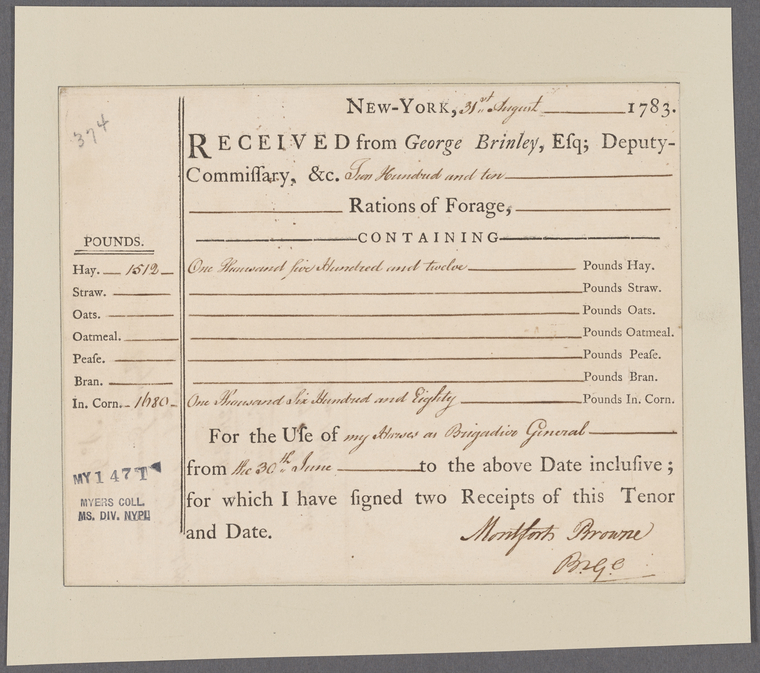 374
NEW-YORK, 31st August 1783.
RECEIVED from George Brinley, Eſq; Deputy-
Commiſſary, &c. Two Hundred and ten
Rations of Forage,
CONTAINING
POUNDS.
Hay. 1512 One Thousand five Hundred and twelve Pounds Hay.
Straw. Pounds Straw.
Oats. Pounds Oats.
Oatmeal. Pounds Oatmeal.
Peaſe. Pounds Peaſe.
Bran. Pounds Bran.
In. Corn. 1680 One Thousand Six Hundred and Eighty Pounds In. Corn.
For the Uſe of my Horses as Brigadier General
from the 30th June to the above Date incluſive;
for which I have ſigned two Receipts of this Tenor
and Date.
Montfort Browne
B.G.
MY 147T
MYERS COLL.
MS. DIV. NYPL